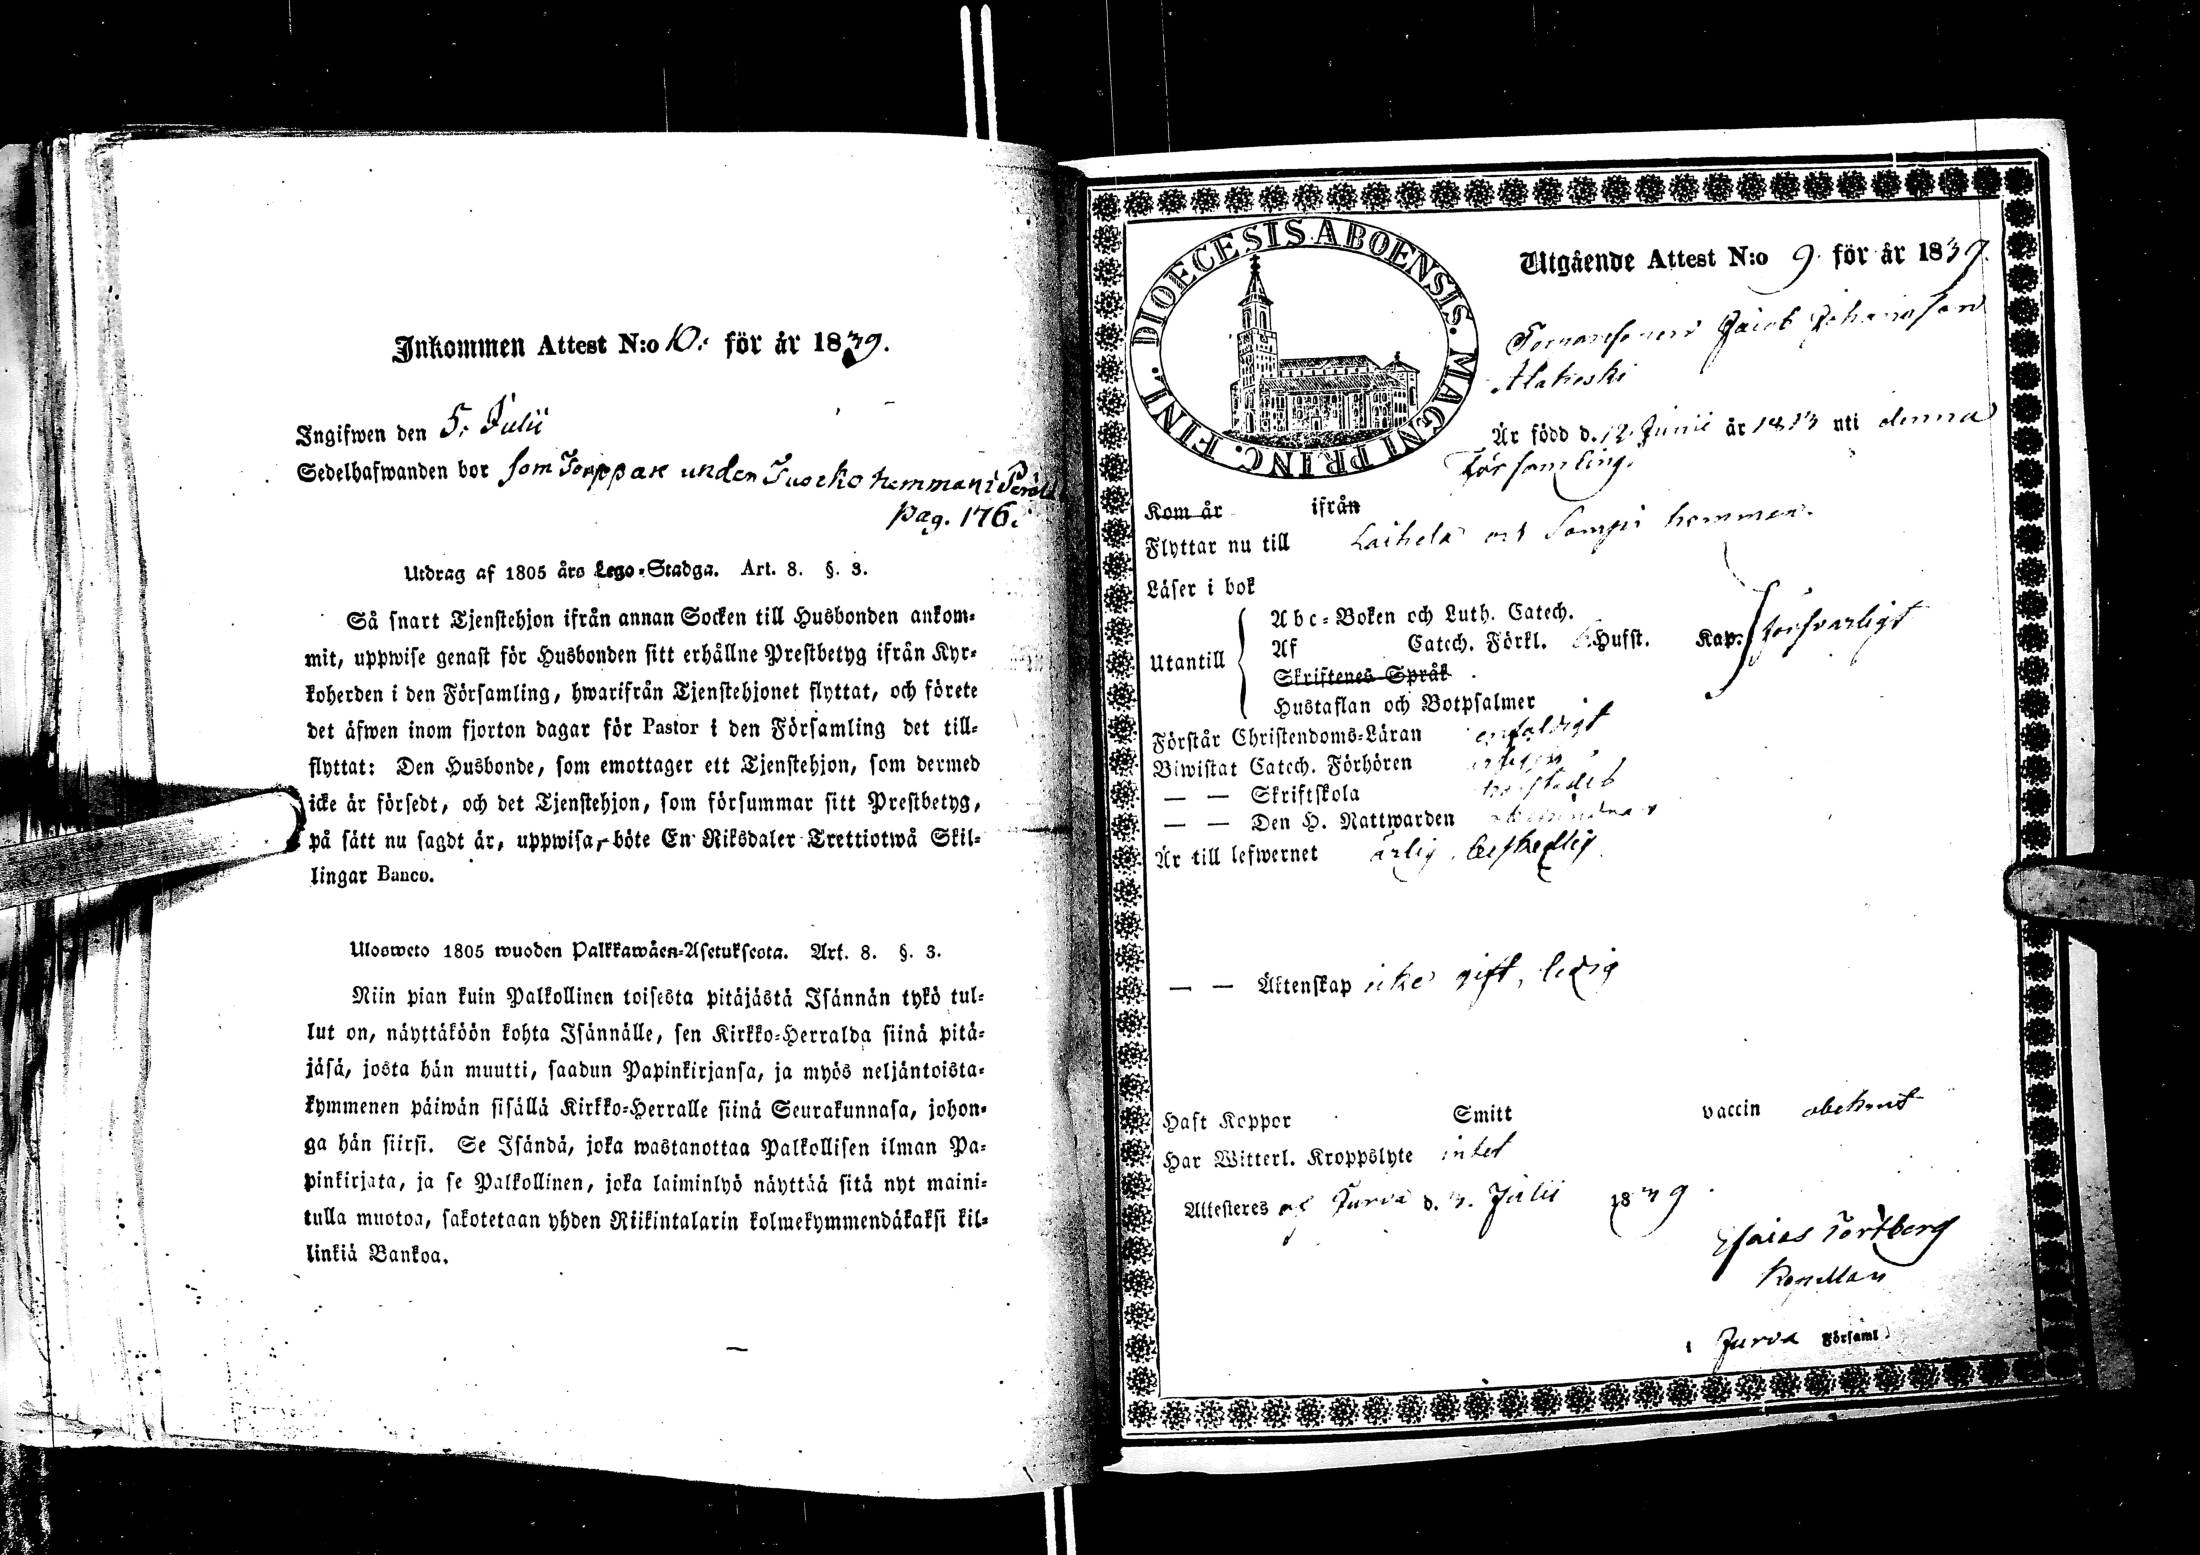 Inkommen Attest N:o 10. för år 1839.
Ingifwen den 5. Julii
Sedelhafwanden bor som Torppare under Juocko hemman i Perälä
pag. 176.
Utdrag af 1805 års Lego-Stadga. Art. 8. §. 3.
Så snart Tjenstehjon ifrån annan Socken till Husbonden ankom-
mit, uppwise genast för Husbonden sitt erhållne Prestbetyg ifrån Kyr-
koherden i den Församling, hwarifrån Tjenstehjonet flyttat, och förete
det äfwen inom fjorton dagar för Pastor i den Församling det till-
flyttat: Den Husbonde, som emottager ett Tjenstehjon, som dermed
icke är försedt, och det Tjenstehjon, som försummar sitt Prestbetyg,
på sätt nu sagdt är, uppwisa, böte En Riksdaler Trettiotwå Skil-
lingar Banco.
Ulosweto 1805 wuoden Palkkawäen-Asetuksesta. Art. 8. §. 3.
Niin pian kuin Palkollinen toisesta pitäjästä Isännän tykö tul-
lut on, näyttäköön kohta Isännälle, sen Kirkko-Herralda siinä pitä-
jäsä, josta hän muutti, saadun Papinkirjansa, ja myös neljäntoista-
kymmenen päiwän sisällä Kirkko-Herralle siinä Seurakunnasa, johon-
ga hän siirsi. Se Isändä, joka wastanottaa Palkollisen ilman Pa-
pinkirjata, ja se Palkollinen, joka laiminlyö näyttää sitä nyt maini-
tulla muotoa, sakotetaan yhden Riikintalarin kolmekymmendäkaksi kil-
linkiä Bankoa.
DIOECESIS ABOENSIS. MAGNI PRINC. FINL.
Utgående Attest N:o 9. för år 1839.
Jacob Johansson
Alakoski
Är född d. 12 Junii år 1813 uti denna
Församling.
Kom år ifrån
Flyttar nu till Laihela och Sompi hemman.
Läser i bok
Utantill
Abc-Boken och Luth. Catech.
Af Catech. Förkl. Husst. Kap. försvarligt
Skriftenes Språk
Hustaflan och Botpsalmer
Förstår Christendoms-Läran enfaldigt
Biwistat Catech. Förhören
— — Skriftskola
— — Den H. Nattwarden
Är till lefwernet ärlig, beskedlig
— — Äktenskap icke gift, ledig
Haft Koppor Smitt vaccin obekant
Har Witterl. Kroppslyte intet
Attesteres af Jurva d. 3. Julii 1839.
Esaias Tortberg
Kapellan
i Jurva Församl.